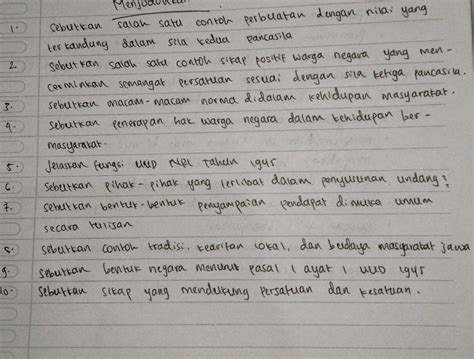 1. Sebutkan salah satu contoh perbuatan dengan nilai yang
terkandung dalam sila kedua pancasila
2. Sebutkan salah satu contoh sikap positif warga negara yang men-
cerminkan semangat persatuan sesuai dengan sila ketiga pancasila.
3. Sebutkan macam-macam norma didalam kehidupan masyarakat.
4. Sebutkan penerapan hak warga negara dalam kehidupan ber-
masyarakat.
5. Jelaskan fungsi UUD NRI Tahun 1945
6. Sebutkan pihak-pihak yang terlibat dalam penyusunan undang²
7. Sebutkan bentuk-bentuk penyampaian pendapat dimuka umum
secara tulisan
8. Sebutkan contoh tradisi, kearifan lokal, dan budaya masyarakat jawa
9. Sebutkan bentuk negara menurut pasal 1 ayat 1 UUD 1945
10. Sebutkan sikap yang mendukung persatuan dan kesatuan.